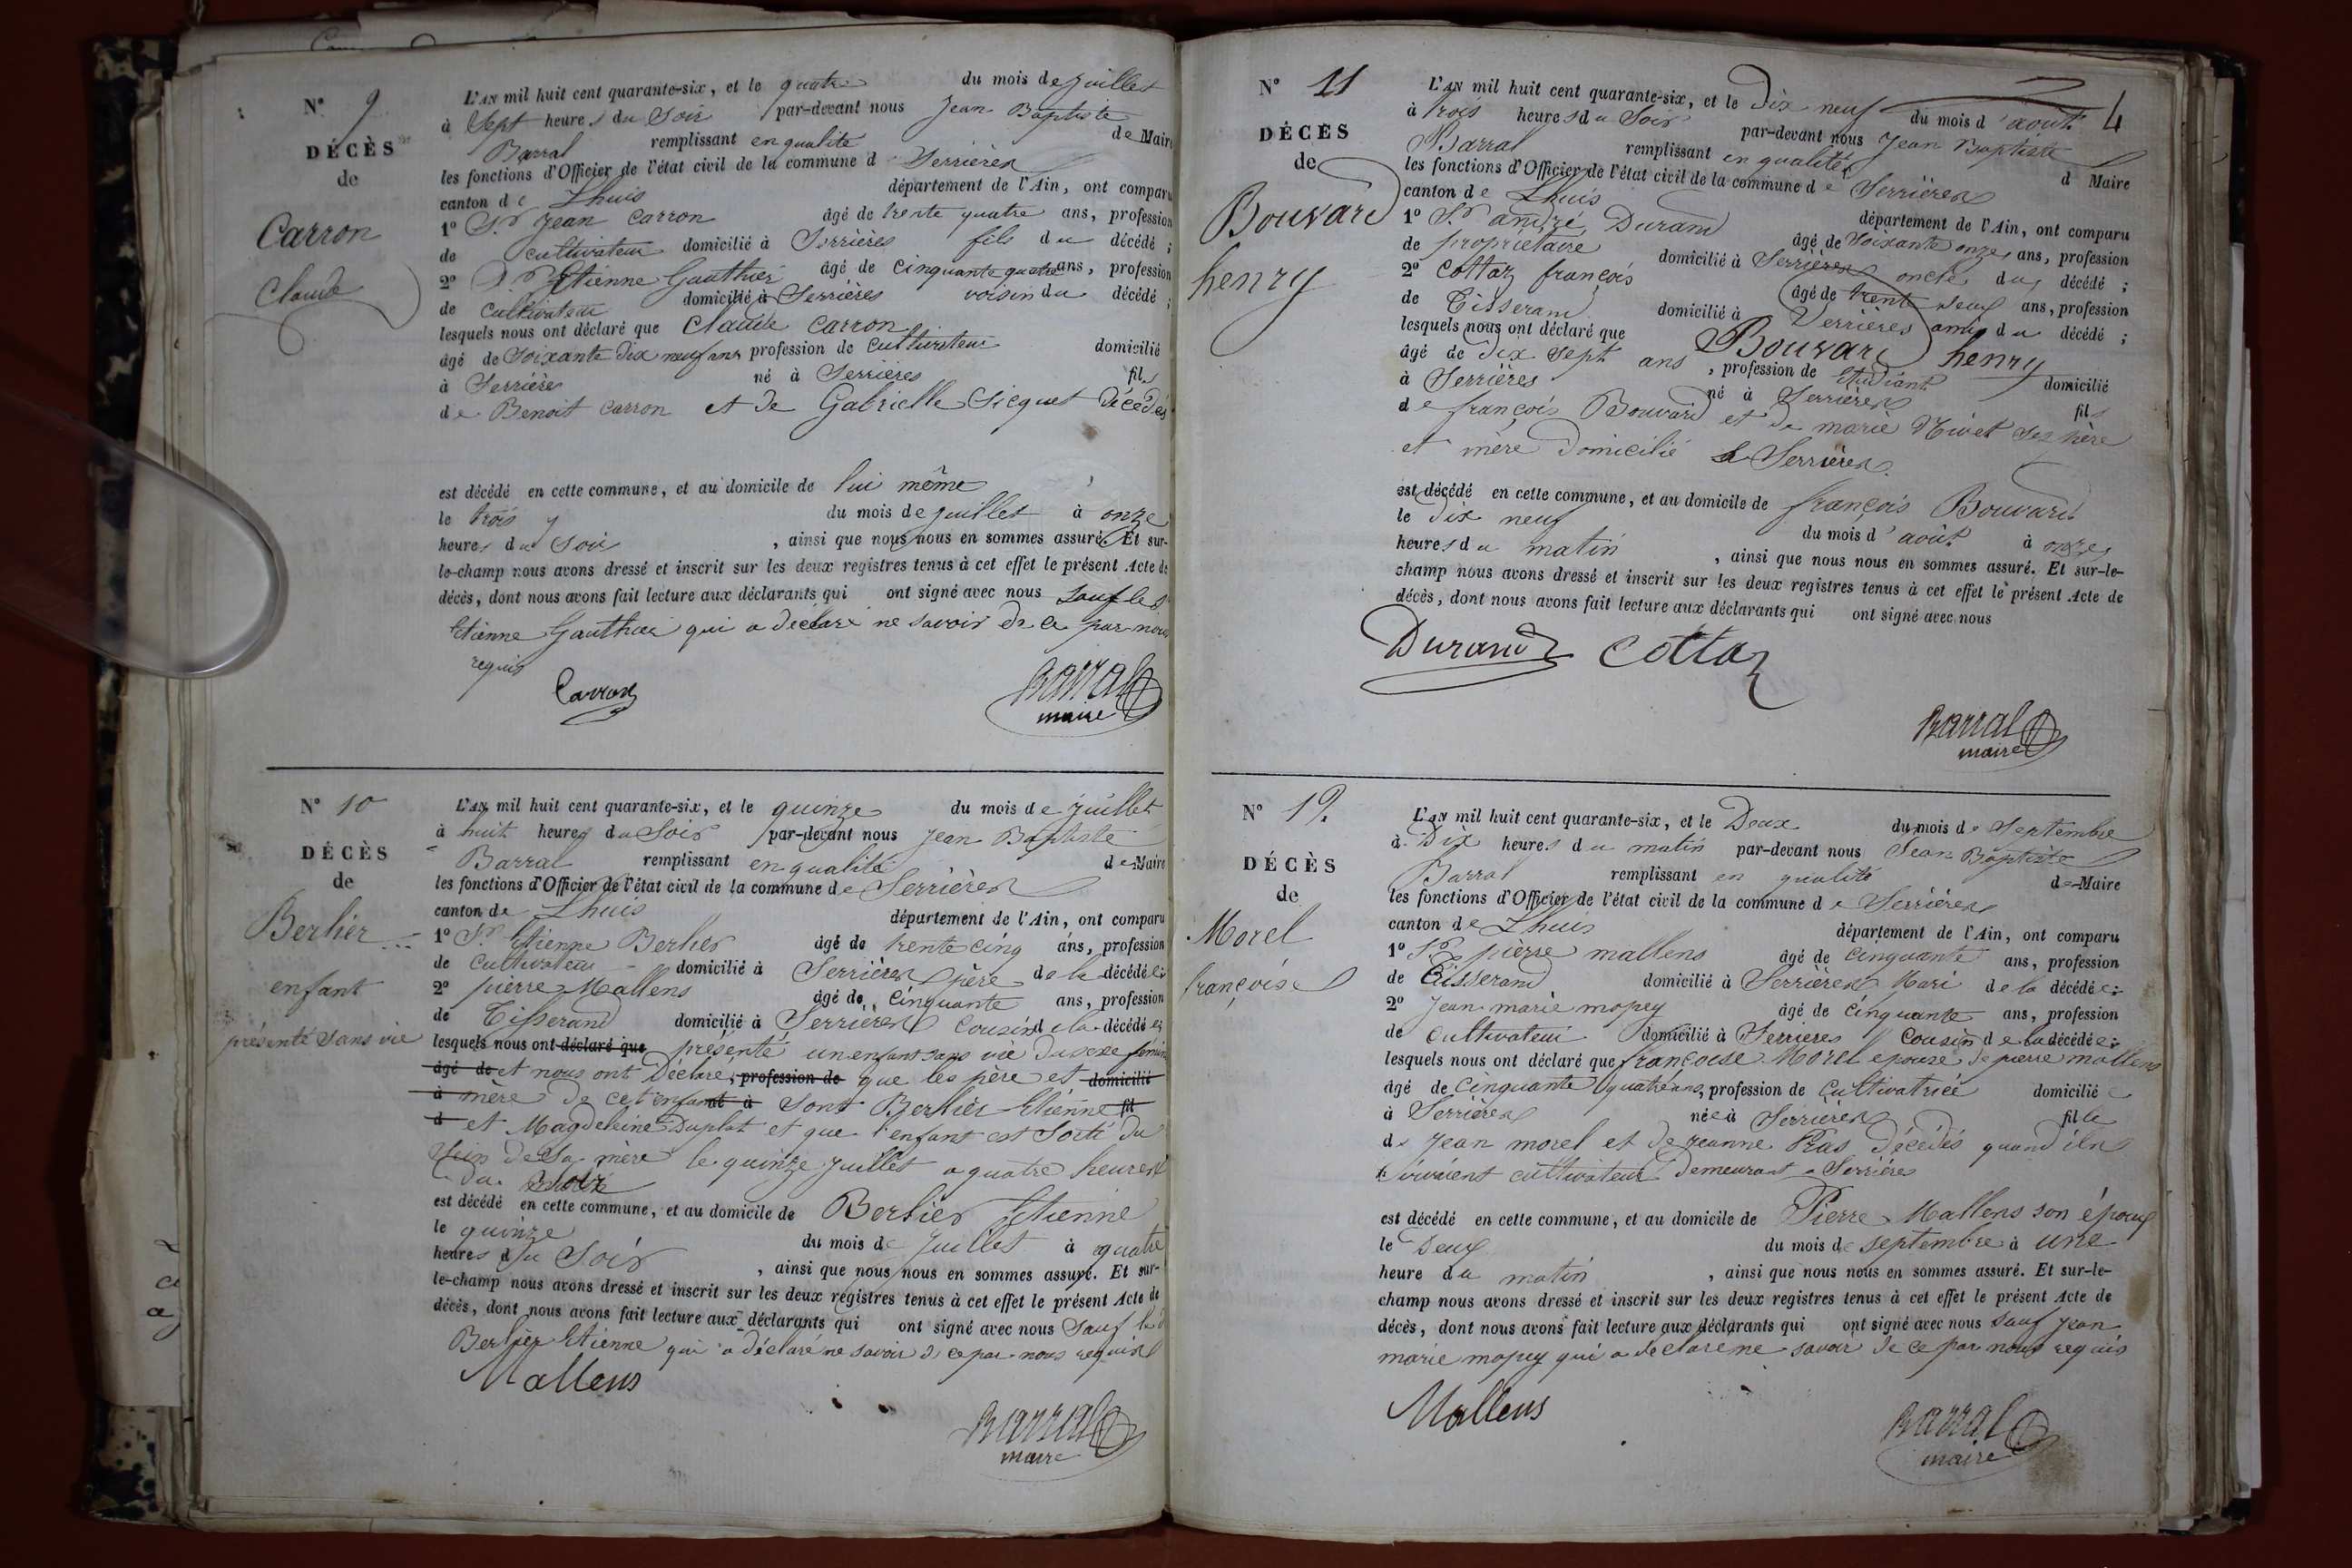 N° 9
DÉCÈS
de
Carron
Claude
L'AN mil huit cent quarante-six, et le quatre du mois de juillet
à sept heures du Soir par-devant nous Jean Baptiste
Barral remplissant en qualité de Maire
les fonctions d'Officier de l'état civil de la commune d Serrières
canton de Lhuis département de l'Ain, ont comparu
1° Sr Jean Carron âgé de trente quatre ans, profession
de cultivateur domicilié à Serrières fils du décédé ;
2° Etienne Gauthier âgé de cinquante quatre ans, profession
de cultivateur domicilié à Serrières voisin du décédé ;
lesquels nous ont déclaré que Claude Carron
âgé de soixante dix neuf ans profession de cultivateur domicilié
à Serrières né à Serrières fils
de Benoit Carron et de Gabrielle Sicquet décédés
est décédé en cette commune, et au domicile de lui même
le trois du mois de juillet à onze
heures du Soir , ainsi que nous nous en sommes assuré. Et sur-
le-champ nous avons dressé et inscrit sur les deux registres tenus à cet effet le présent Acte de
décès, dont nous avons fait lecture aux déclarants qui ont signé avec nous Sauf led
Etienne Gauthier qui a déclaré ne savoir de ce par nous
requis
Carron
Barral
maire
N° 10
DÉCÈS
de
Berlier
enfant
présenté sans vie
L'AN mil huit cent quarante-six, et le quinze du mois de juillet
à huit heures du Soir par-devant nous Jean Baptiste
Barral remplissant en qualité de Maire
les fonctions d'Officier de l'état civil de la commune de Serrières
canton de Lhuis département de l'Ain, ont comparu
1° Sr Etienne Berlier âgé de trente cinq ans, profession
de cultivateur domicilié à Serrières père de la décédée ;
2° pierre Mallens âgé de cinquante ans, profession
de Tisserand domicilié à Serrières Cousin de la décédée ;
lesquels nous ont déclaré que présenté un enfant sans vie du sexe féminin
âgé de et nous ont Déclaré, profession de que les père et domicilié
à mère de cet enfant à sont Berlier Etienne fil
d et Magdeleine Duplat et que l'enfant est Sorti du
Sein de Sa mère le quinze juillet a quatre heures
du soir
est décédé en cette commune, et au domicile de Berlier Etienne
le quinze du mois de juillet à quatre
heures du Soir , ainsi que nous nous en sommes assuré. Et sur-
le-champ nous avons dressé et inscrit sur les deux registres tenus à cet effet le présent Acte de
décès, dont nous avons fait lecture aux déclarants qui ont signé avec nous Sauf led
Berlier Etienne qui a déclaré ne savoir de ce par nous requis
Mallens
Barral
maire
4
N° 11
DÉCÈS
de
Bouvard
henry
L'AN mil huit cent quarante-six, et le Dix neuf du mois d'août
à trois heures du Soir par-devant nous Jean Baptiste
Barral remplissant en qualité d Maire
les fonctions d'Officier de l'état civil de la commune de Serrières
canton de Lhuis département de l'Ain, ont comparu
1° Sr andré Durand âgé de soixante onze ans, profession
de propriétaire domicilié à Serrières oncle du décédé ;
2° Cottaz françois âgé de trent neuf ans, profession
de Tisserand domicilié à Serrières ami du décédé ;
lesquels nous ont déclaré que Bouvard henry
âgé de dix sept ans , profession de Etudiant domicilié
à Serrières né à Serrières fils
de françois Bouvard et de marie Nivet ses père
et mère Domicilié à Serrières
est décédé en cette commune, et au domicile de françois Bouvard
le dix neuf du mois d'août à onze
heures du matin , ainsi que nous nous en sommes assuré. Et sur-le-
champ nous avons dressé et inscrit sur les deux registres tenus à cet effet le présent Acte de
décès, dont nous avons fait lecture aux déclarants qui ont signé avec nous
Durand Cottaz
Barral
maire
N° 12
DÉCÈS
de
Morel
françoise
L'AN mil huit cent quarante-six, et le Deux du mois de Septembre
à Dix heures du matin par-devant nous Jean Baptiste
Barral remplissant en qualité de Maire
les fonctions d'Officier de l'état civil de la commune de Serrières
canton de Lhuis département de l'Ain, ont comparu
1° Sr pierre mallens âgé de cinquante ans, profession
de Tisserand domicilié à Serrières Mari de la décédée ;
2° Jean marie mopey âgé de cinquante ans, profession
de cultivateur domicilié à Serrieres Cousin de la décédée ;
lesquels nous ont déclaré que françoise Morel epouse de pierre mallens
âgé de cinquante quatre ans, profession de cultivatrice domicilié
à Serrières née à Serrières fille
de Jean morel et de jeanne Pras décédés quand ils
vivaient cultivateur demeurant a Serrières
est décédé en cette commune, et au domicile de Pierre Mallens son époux
le Deux du mois de septembre à une
heure du matin , ainsi que nous nous en sommes assuré. Et sur-le-
champ nous avons dressé et inscrit sur les deux registres tenus à cet effet le présent Acte de
décès, dont nous avons fait lecture aux déclarants qui ont signé avec nous sauf jean
marie mopey qui a déclaré ne savoir de ce par nous requis
Mallens
Barral
maire